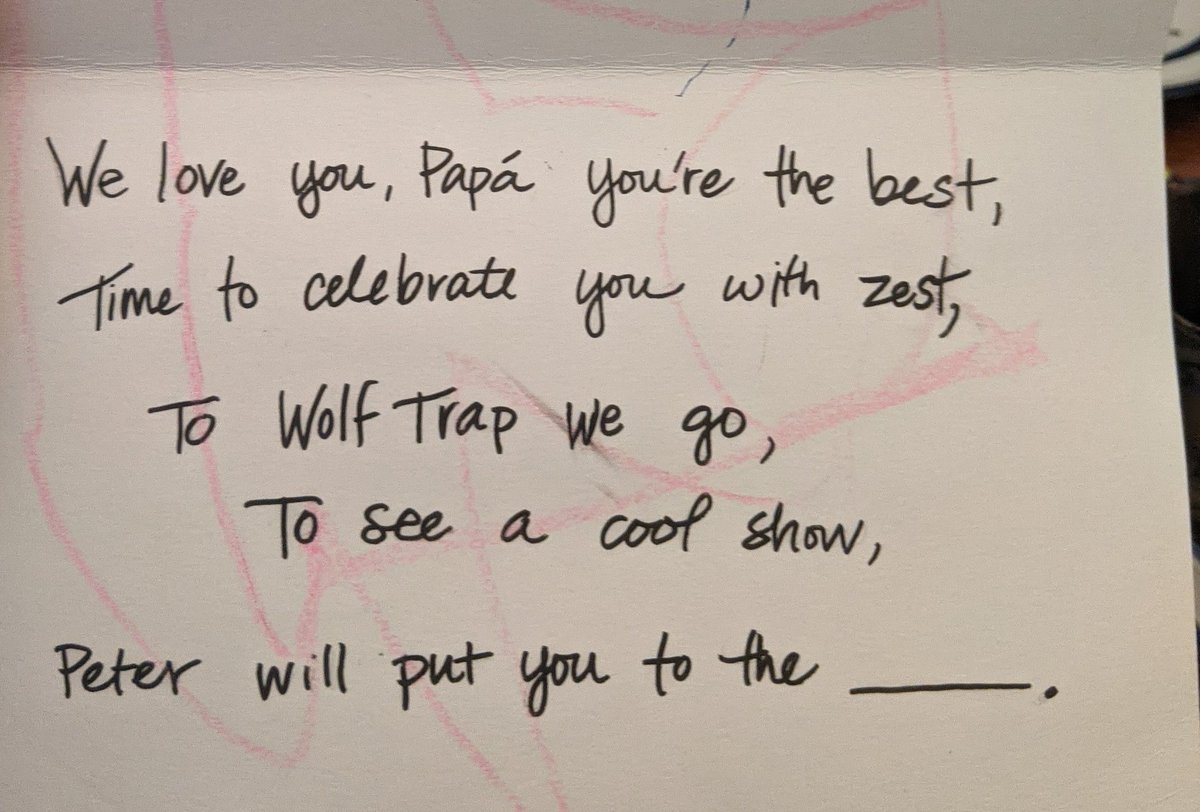 We love you, Papá you're the best,
Time to celebrate you with zest,
To Wolf Trap we go,
To see a cool show,
Peter will put you to the _____.